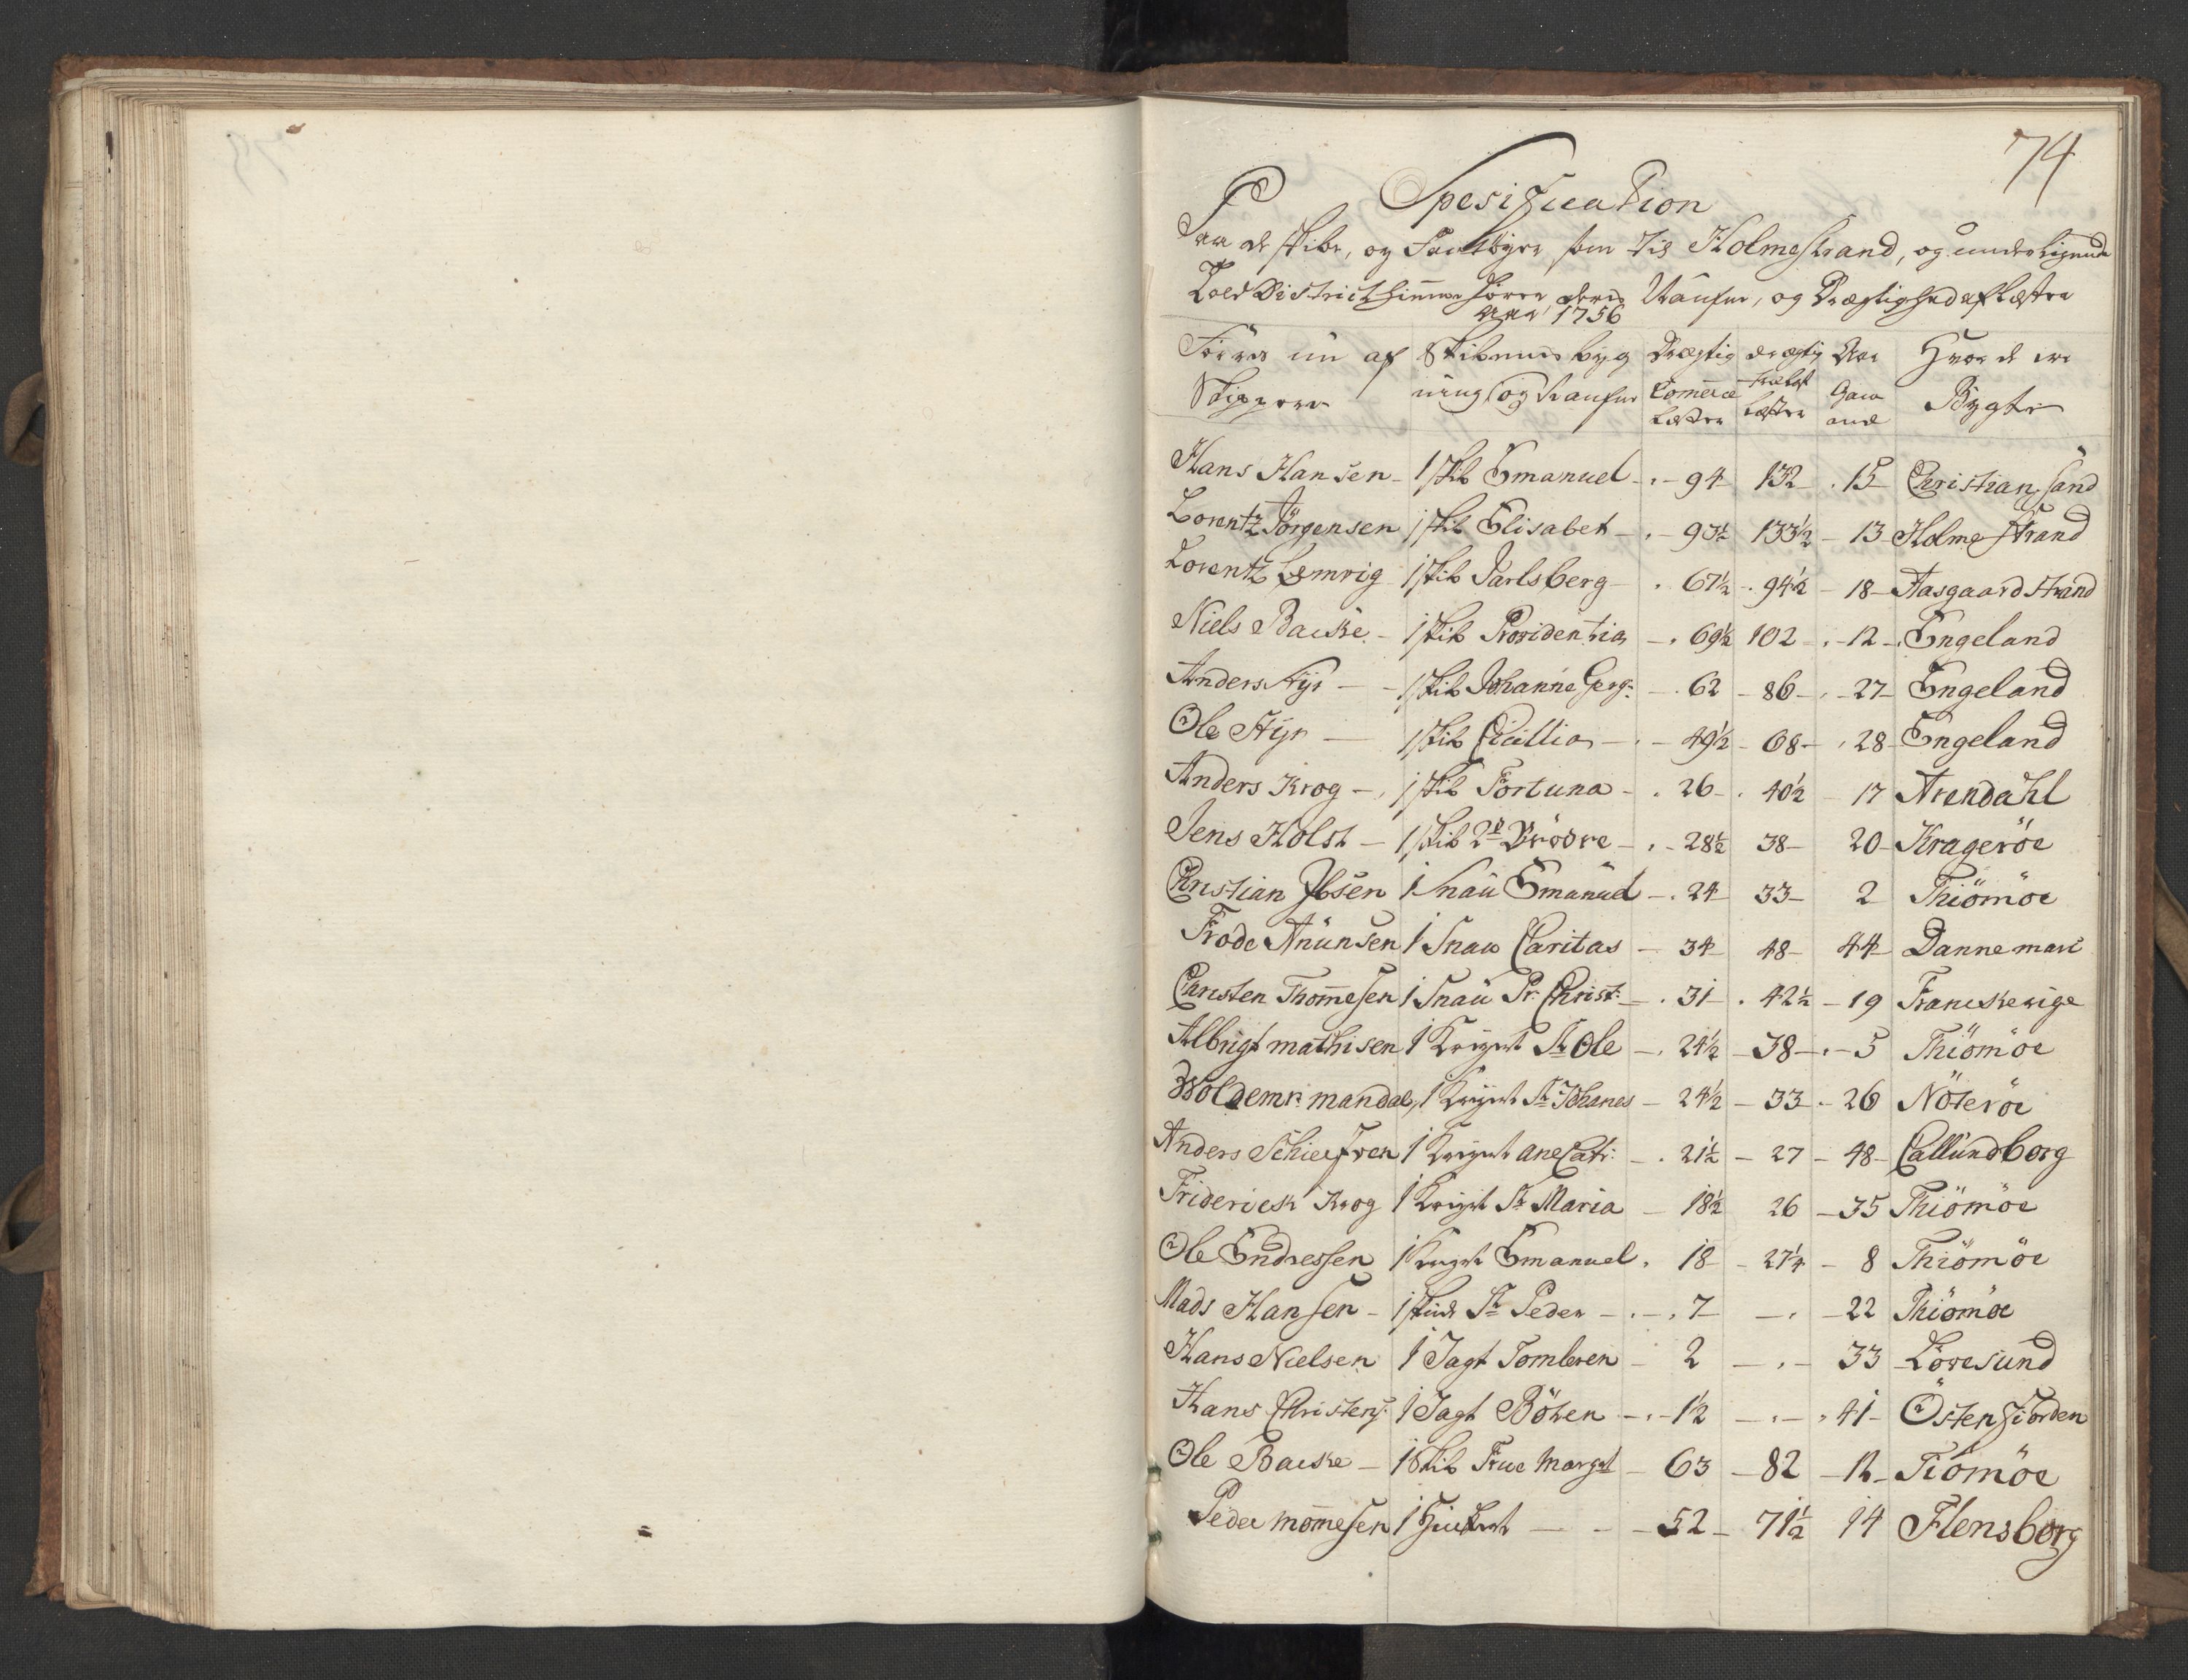 74
Spesification
Paa de skibe, og Fartöyer som til Holmestrand, og underliggende
Told District hiemme hörer deres Naufne, og Drægtighed af Læster
Aar 1756
Förer ne af Skibenis byg Drægtig drægtig Aar Hvor de ere
Skippere ning og Naufne Comerce Trælast Gam Bygte
Læster Læster ole
Hans Hansen - 1 skib Emanuel - 94 132 15 Christiansand
Lorentz Jörgensen 1 skib Elisabet - 93½ 133½ - 13 Holmestrand
Lorentz Lemvig 1 skib Jarlsberg - 67½ - 94½ - 18 - Aasgaardstrand
Niels Backe - 1 skib Providentia - 69½ 102 - 12 - Engeland
Anders Nÿs - - 1 skib Johanne Gerg: - 62 - 86 - 27 - Engeland
Ole Nÿs - 1 skib Cicillia - 49½ - 68 - 28 - Engeland
Anders Krog - 1 skib Fortuna - 26 - 40½ - 17 Arendahl
Jens Holst - 1 skib 2de Brödre - 28½ 38 - 20 - Krageröe
Christian Ibsen 1 Snau Emanuel - 24 33 - 2 Thiömöe
Frode Anunsen 1 Snau Caritas - 34 48 - 44 - Dannemarc
Christen Thommesen 1 Snau Pr: Christ: - 31 - 42½ - 19 Franckerige
Albrigt mathisen 1 Kreyert St Ole - 24½ - 38 - 5 Thiömöe
Woldemr: mandal, 1 Kreyert St Johanes - 24½ - 33 - 26 Nöteröe
Anders 1 Kreyert ane Catr: - 21½ - 27 - 48 - Callundborg
Friderick Krog 1 Kreyert St Maria - 18½ 26 - 35 Thiömöe
Ole Endressen 1 Kreyert Emanuel 18 - 27¼ - 8 Thiömöe
Mads Hansen - 1 skude St Peder - 7 - - 22 Thiömöe
Hans Nielsen 1 Jagt Tomleren - 2 - - 33 Lövesund
Hans Christens: 1 Jagt Böten - 1½ - - 41 - Östensfiorden
Ole Backe - 1 Skib Frue Margrt - 63 - 82 - 12 - Tiömöe
Peder mommesen 1 Huckert - - - 52 - 71½ 14 Flensborg